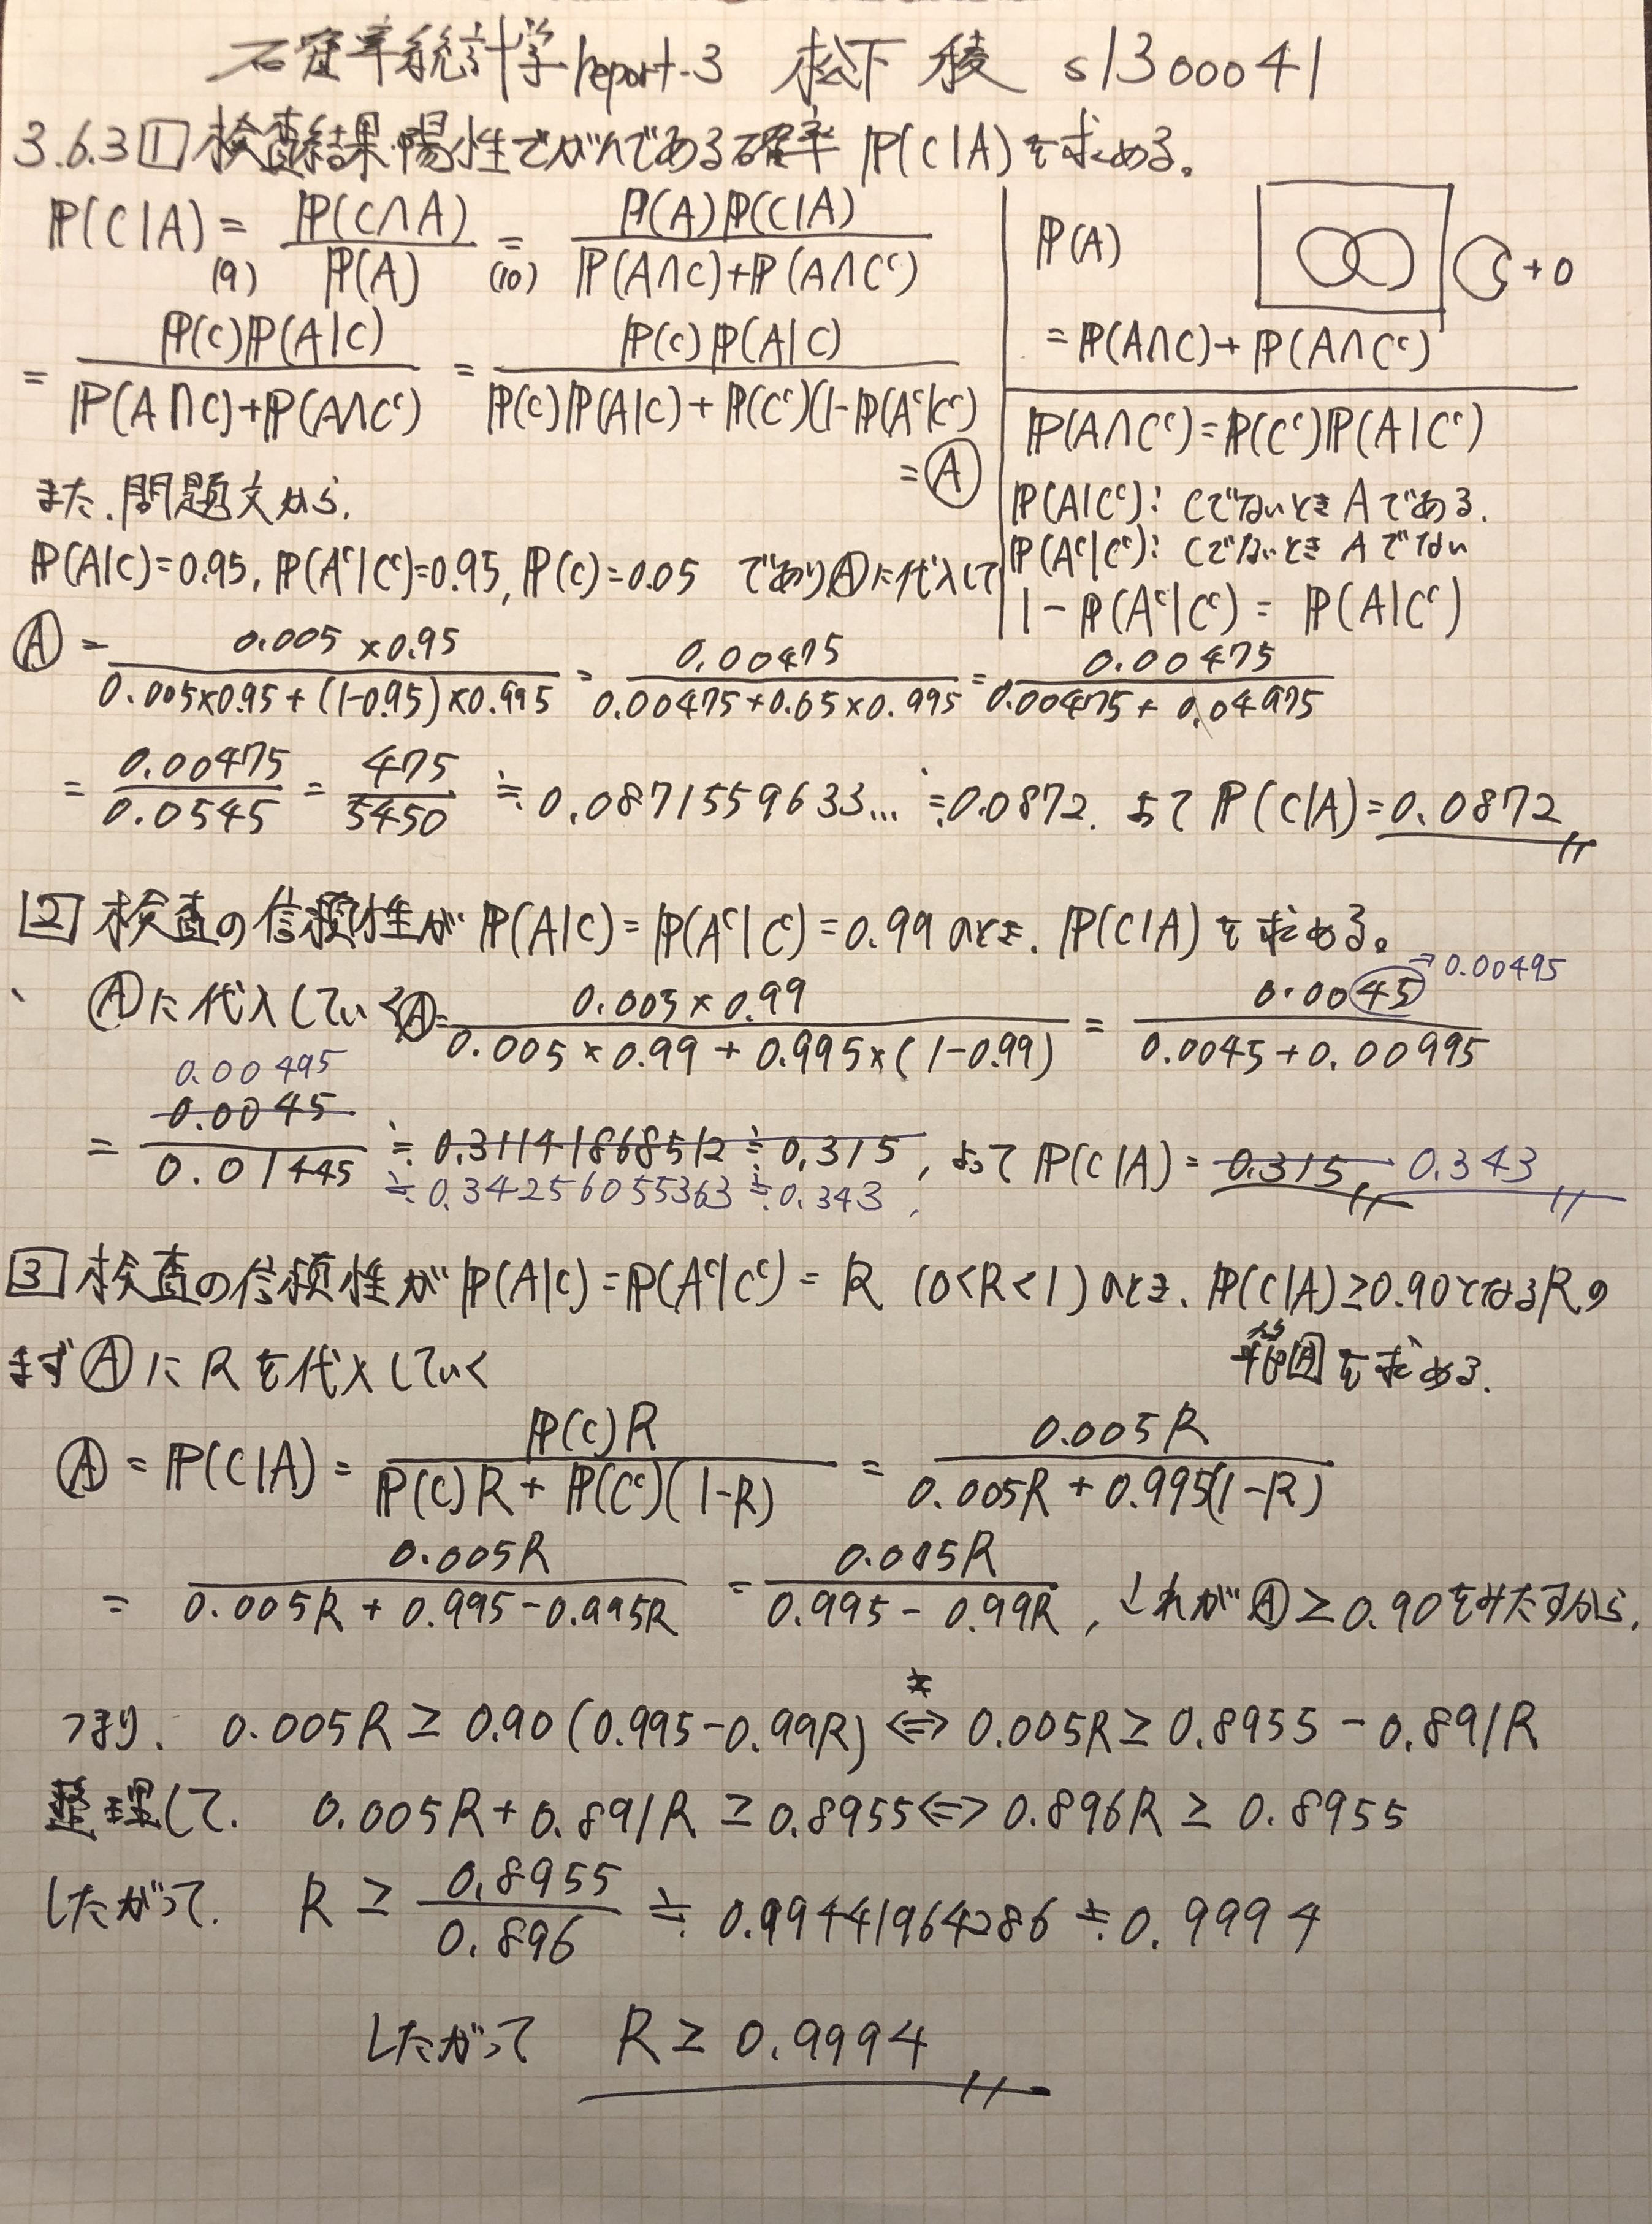 確率統計学report-3 松下 稜 s1300041
3.6.3 1 検査結果陽性でがんである確率 P(C|A)を求める。
P(C|A) = P(C∩A) / P(A) = P(A)P(C|A) / P(A∩C)+P(A∩Cᶜ)
(9) (10)
= P(C)P(A|C) / P(A∩C)+P(A∩Cᶜ) = P(C)P(A|C) / P(C)P(A|C)+P(Cᶜ)(1-P(Aᶜ|Cᶜ)
= Ⓐ
P(A)
+0
= P(A∩C)+P(A∩Cᶜ)
P(A∩Cᶜ)=P(Cᶜ)P(A|Cᶜ)
P(A|Cᶜ): CでないときAである.
P(Aᶜ|Cᶜ): CでないときAでない
1-P(Aᶜ|Cᶜ) = P(A|Cᶜ)
また.問題文から.
P(A|C)=0.95, P(Aᶜ|Cᶜ)=0.95, P(C)=0.05 でありⒶに代入して
Ⓐ = 0.005×0.95 / 0.005×0.95+(1-0.95)×0.995 = 0.00475 / 0.00475+0.05×0.995 = 0.00475 / 0.00475+0.04975
= 0.00475 / 0.0545 = 475 / 5450 ≒ 0.0871559633... ≒0.0872. よって P(C|A)=0.0872
2 検査の信頼性が P(A|C)=P(Aᶜ|Cᶜ)=0.99 のとき. P(C|A)を求める。
Ⓐに代入していく Ⓐ= 0.005×0.99 / 0.005×0.99+0.995×(1-0.99) = 0.0045 / 0.0045+0.00995
→0.00495
0.00495
= 0.0045 / 0.01445 ≒ 0.31141868512≒0.315, よって P(C|A)=0.315 0.343
≒0.34256055363≒0.343,
3 検査の信頼性が P(A|C)=P(Aᶜ|Cᶜ)=R (0<R<1)のとき. P(C|A)≥0.90となるRの
範囲を求める.
まずⒶにRを代入していく
Ⓐ = P(C|A) = P(C)R / P(C)R+P(Cᶜ)(1-R) = 0.005R / 0.005R+0.995(1-R)
= 0.005R / 0.005R+0.995-0.995R = 0.005R / 0.995-0.99R , これがⒶ≥0.90をみたすから,
つまり. 0.005R ≥ 0.90(0.995-0.99R) ⇔ 0.005R ≥ 0.8955-0.891R
整理して. 0.005R+0.891R ≥ 0.8955 ⇔ 0.896R ≥ 0.8955
したがって. R ≥ 0.8955 / 0.896 ≒ 0.99441964286 ≒ 0.9994
したがって R ≥ 0.9994